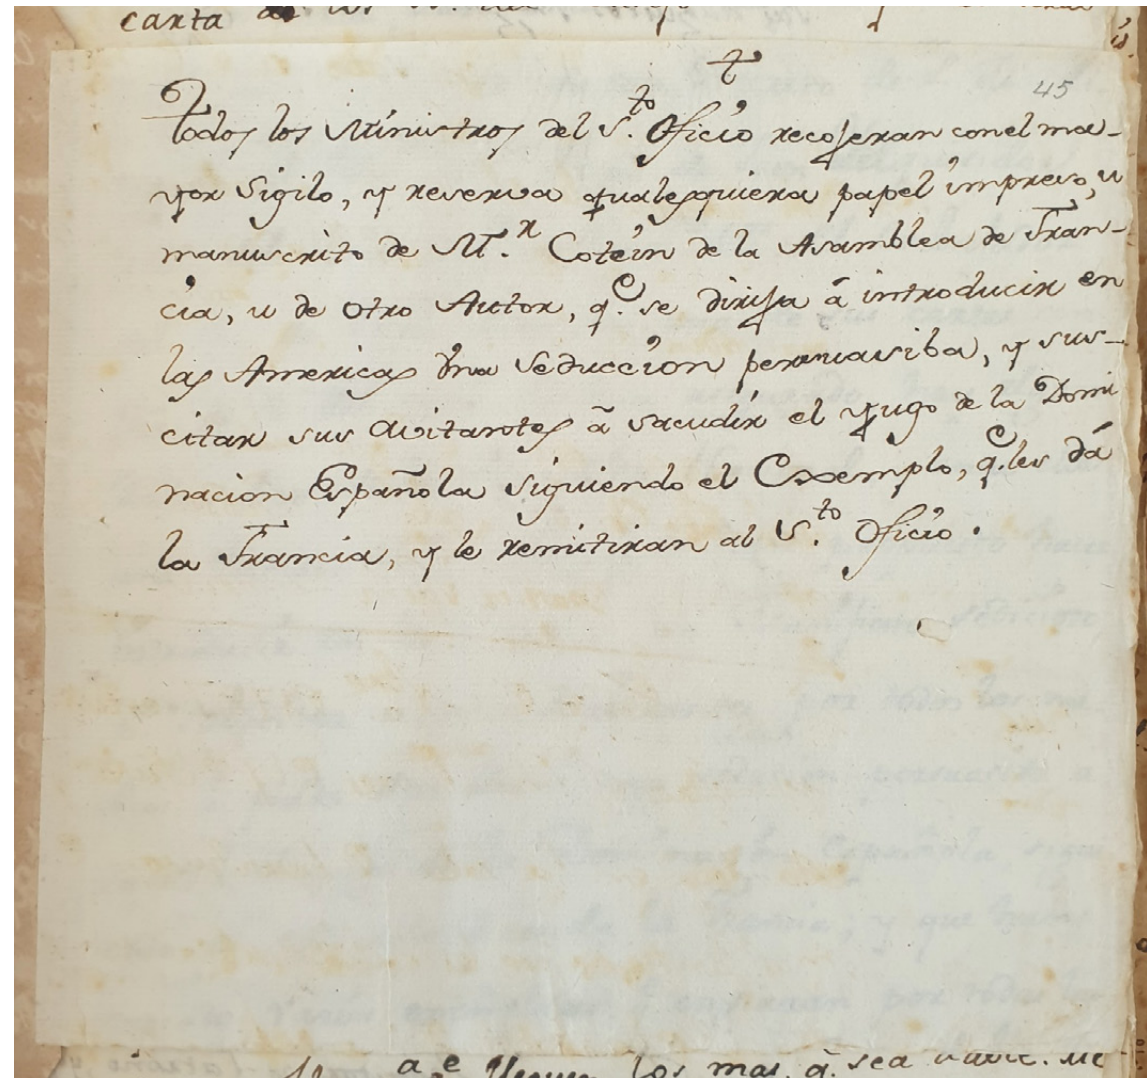 carta
45
Todos los Ministros del S.to Oficio recojeran con el ma-
yor Sigilo, y reserva qualesquiera papel impreso, u
manuscrito de M.r Cotein de la Asamblea de Fran-
cia, u de otro Autor, q.e se dirija â introducir en
las Americas una Seduccion persuasiba, y sus-
citar sus avitantes â sacudir el yugo de la Domi
nacion Española siguiendo el Exemplo, q.e les dá
la Francia, y le remitiran al S.to Oficio.
los mas. q. sea